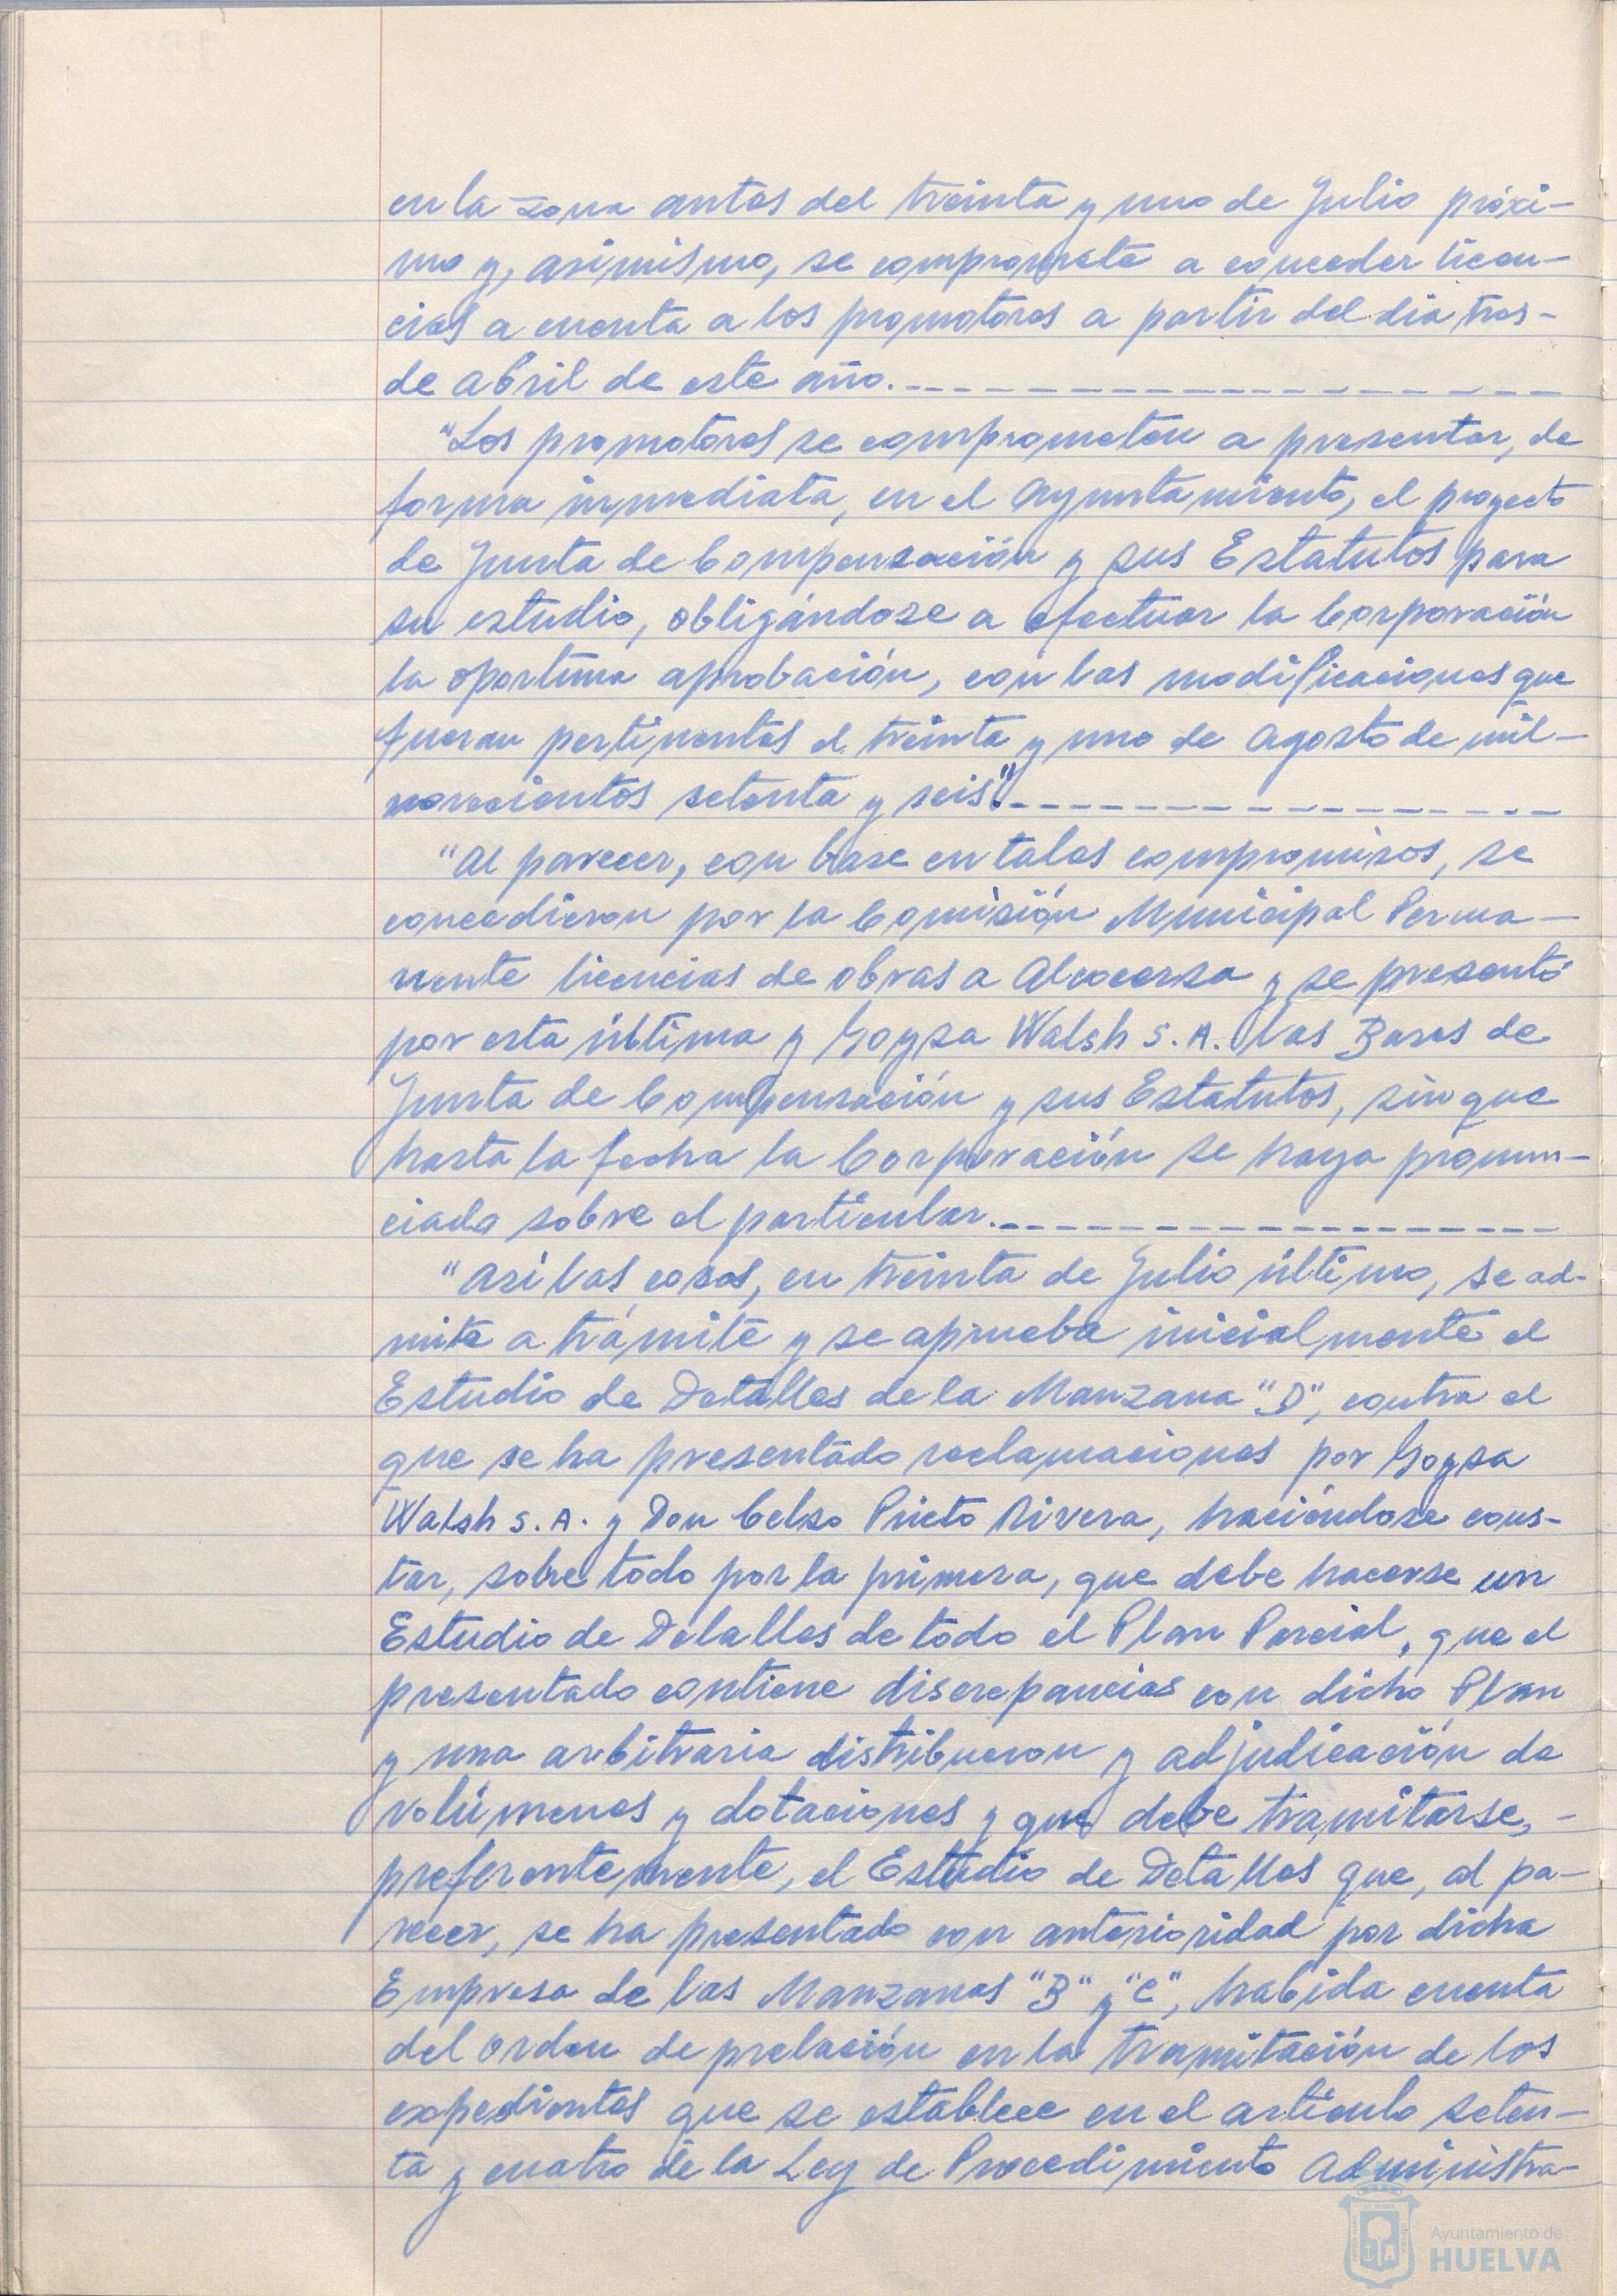 en la zona antes del treinta y uno de Julio próxi-
mo y, asimismo, se compromete a conceder licen-
cias a cuenta a los promotores a partir del dia tres-
de abril de este año.------------------
"Los promotores se comprometen a presentar, de
forma inmediata, en el Ayuntamiento, el proyecto
de Junta de Compensación y sus Estatutos para
su estudio, obligándose a efectuar la Corporación
la oportuna aprobación, con las modificaciones que
fueran pertinentes el treinta y uno de Agosto de mil-
novecientos setenta y seis".------------------
"Al parecer, con base en tales compromisos, se
concedieron por la Comisión Municipal Perma-
nente licencias de obras a Alcocersa y se presentó
por esta última y Goysa Walsh S.A. las Bases de
Junta de Compensación y sus Estatutos, sin que
hasta la fecha la Corporación se haya pronun-
ciado sobre el particular.------------------
"Así las cosas, en treinta de Julio último, se ad-
mite a trámite y se aprueba inicialmente el
Estudio de Detalles de la Manzana "D", contra el
que se ha presentado reclamaciones por Goysa
Walsh S.A. y Don Celso Prieto Rivera, haciéndose cons-
tar, sobre todo por la primera, que debe hacerse un
Estudio de Detalles de todo el Plan Parcial, que el
presentado contiene discrepancias con dicho Plan
y una arbitraria distribucion y adjudicación de
volúmenes y dotaciones y que debe tramitarse,-
preferentemente, el Estudio de Detalles que, al pa-
recer, se ha presentado con anterioridad por dicha
Empresa de las Manzanas "B" y "C", habida cuenta
del orden de prelación en la tramitación de los
expedientes que se establece en el artículo seten-
ta y cuatro de la Ley de Procedimiento Administra-
Ayuntamiento de
HUELVA